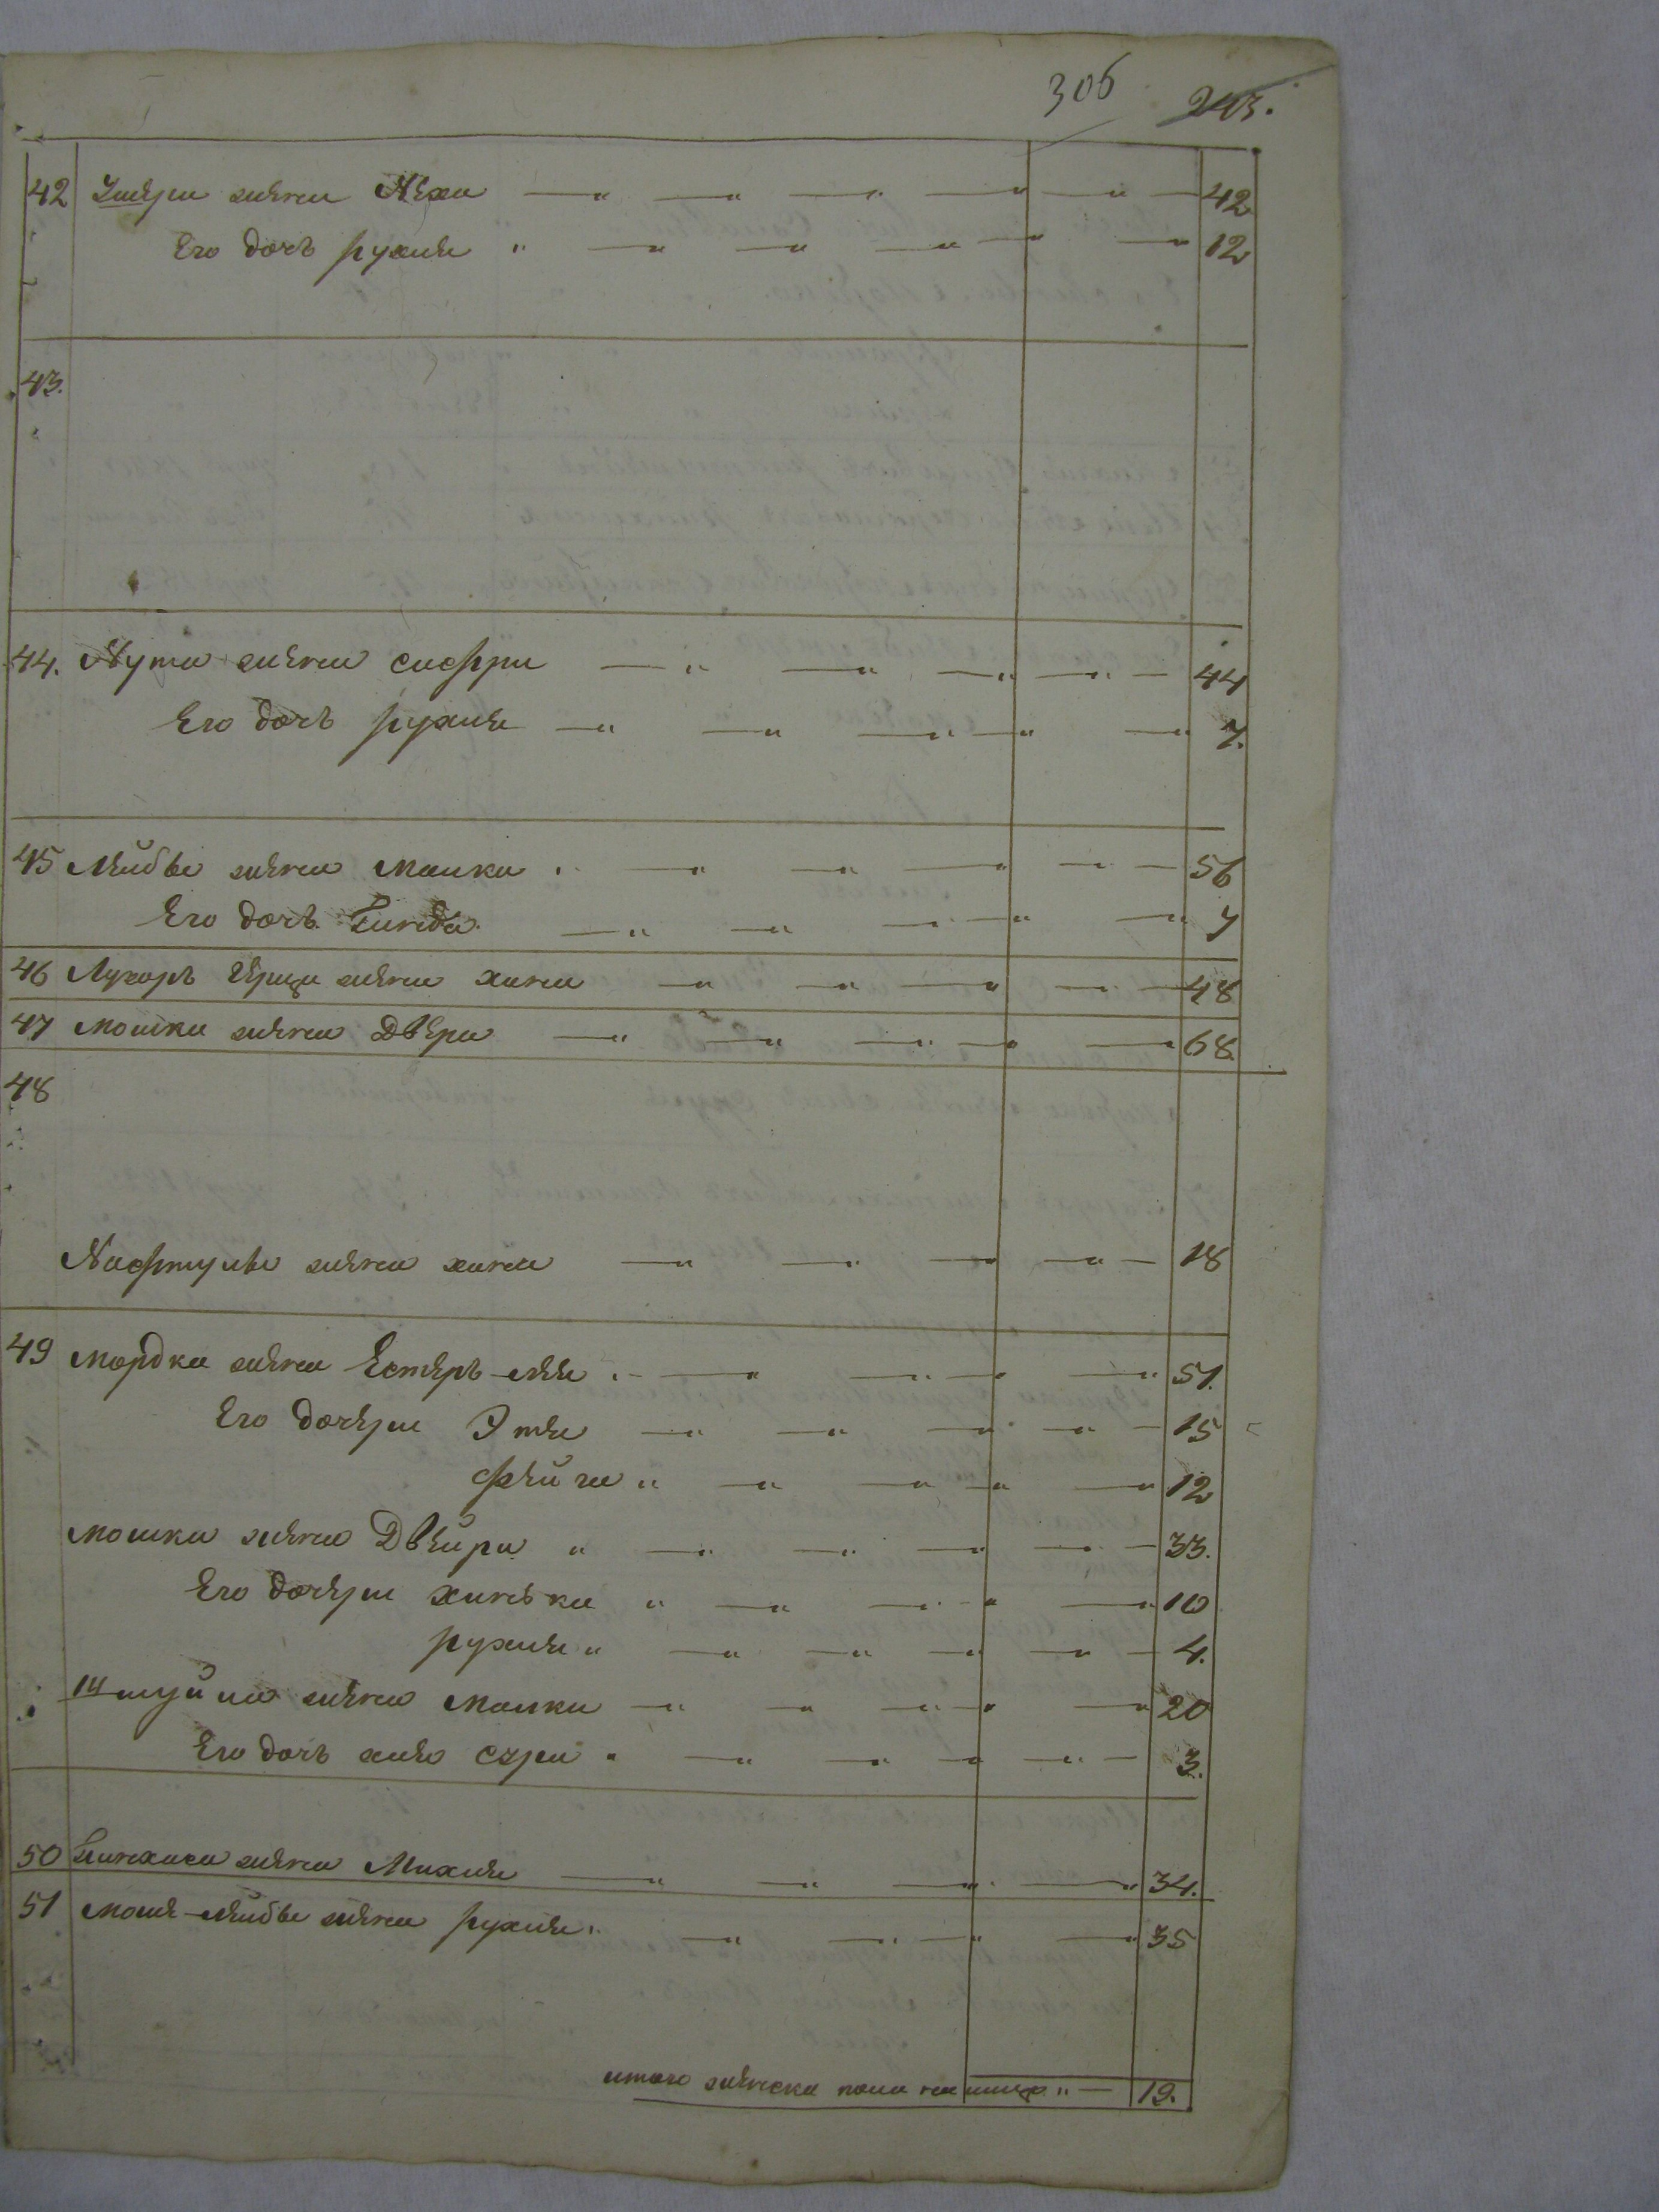 306 243.
42 Умери жена Неха — " — " — " — " — " — 42
Его дочь рухля " — " — " — " — " — " 12
43.
44. Нута жена сифри — " — " — " — " — 44
Его дочь рухля — " — " — " — " — " 7.
45 Лейбы жена малка " — " — " — " — " — 56
Его дочь Гинда — " — " — " — " — " 7
46 Лузорь Герца жена хана — " — " — " — " — 48
47 мошка жена Двера — " — " — " — " — " 68.
48
Нафтулы жена хана — " — " — " — " — 18
49 мордка жена Естерь-лея " — " — " — " — " 51.
Его дочери Этля — " — " — " — " — 15
фейга " — " — " — " — " 12
мошка жена Двейра " — " — " — " — " — 33.
Его дочери ханька " — " — " — " — " 10
рухля " — " — " — " — " — 4.
жена малка — " — " — " — " 20
Его дочь хая сура " — " — " — " — " — 3.
50 Пинхаса жена Михля — " — " — " — " 34.
51 мошя-лейбы жена рухля " — " — " — " — " 35
итого женска пола на лицо " — 19.